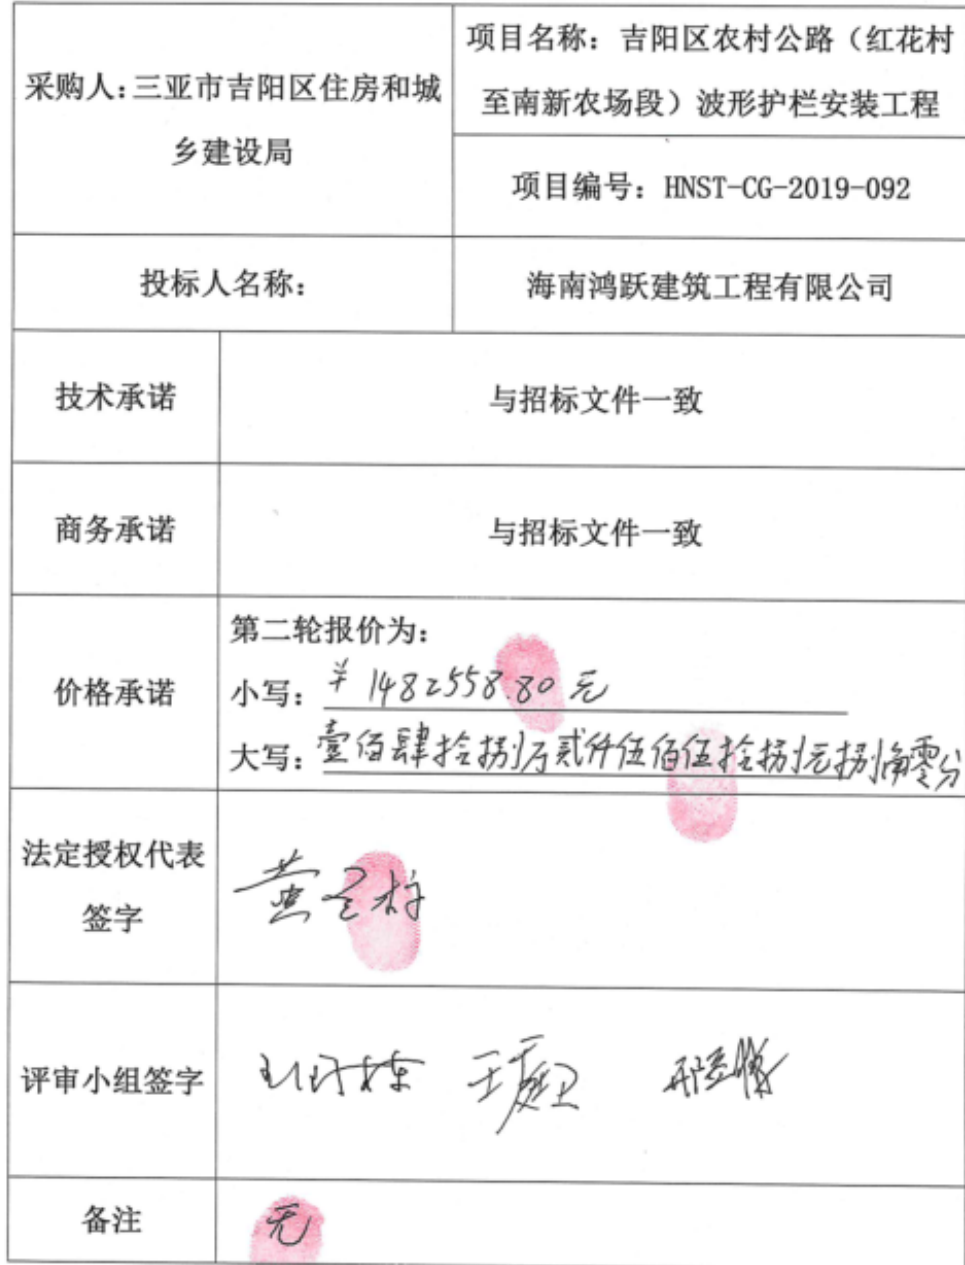 采购人:三亚市吉阳区住房和城
乡建设局
项目名称：吉阳区农村公路（红花村
至南新农场段）波形护栏安装工程
项目编号：HNST-CG-2019-092
投标人名称：
海南鸿跃建筑工程有限公司
技术承诺
与招标文件一致
商务承诺
与招标文件一致
价格承诺
第二轮报价为：
小写：¥1482558.80元
大写：壹佰肆拾捌万贰仟伍佰伍拾捌元捌角零分
法定授权代表
签字
评审小组签字
备注
无